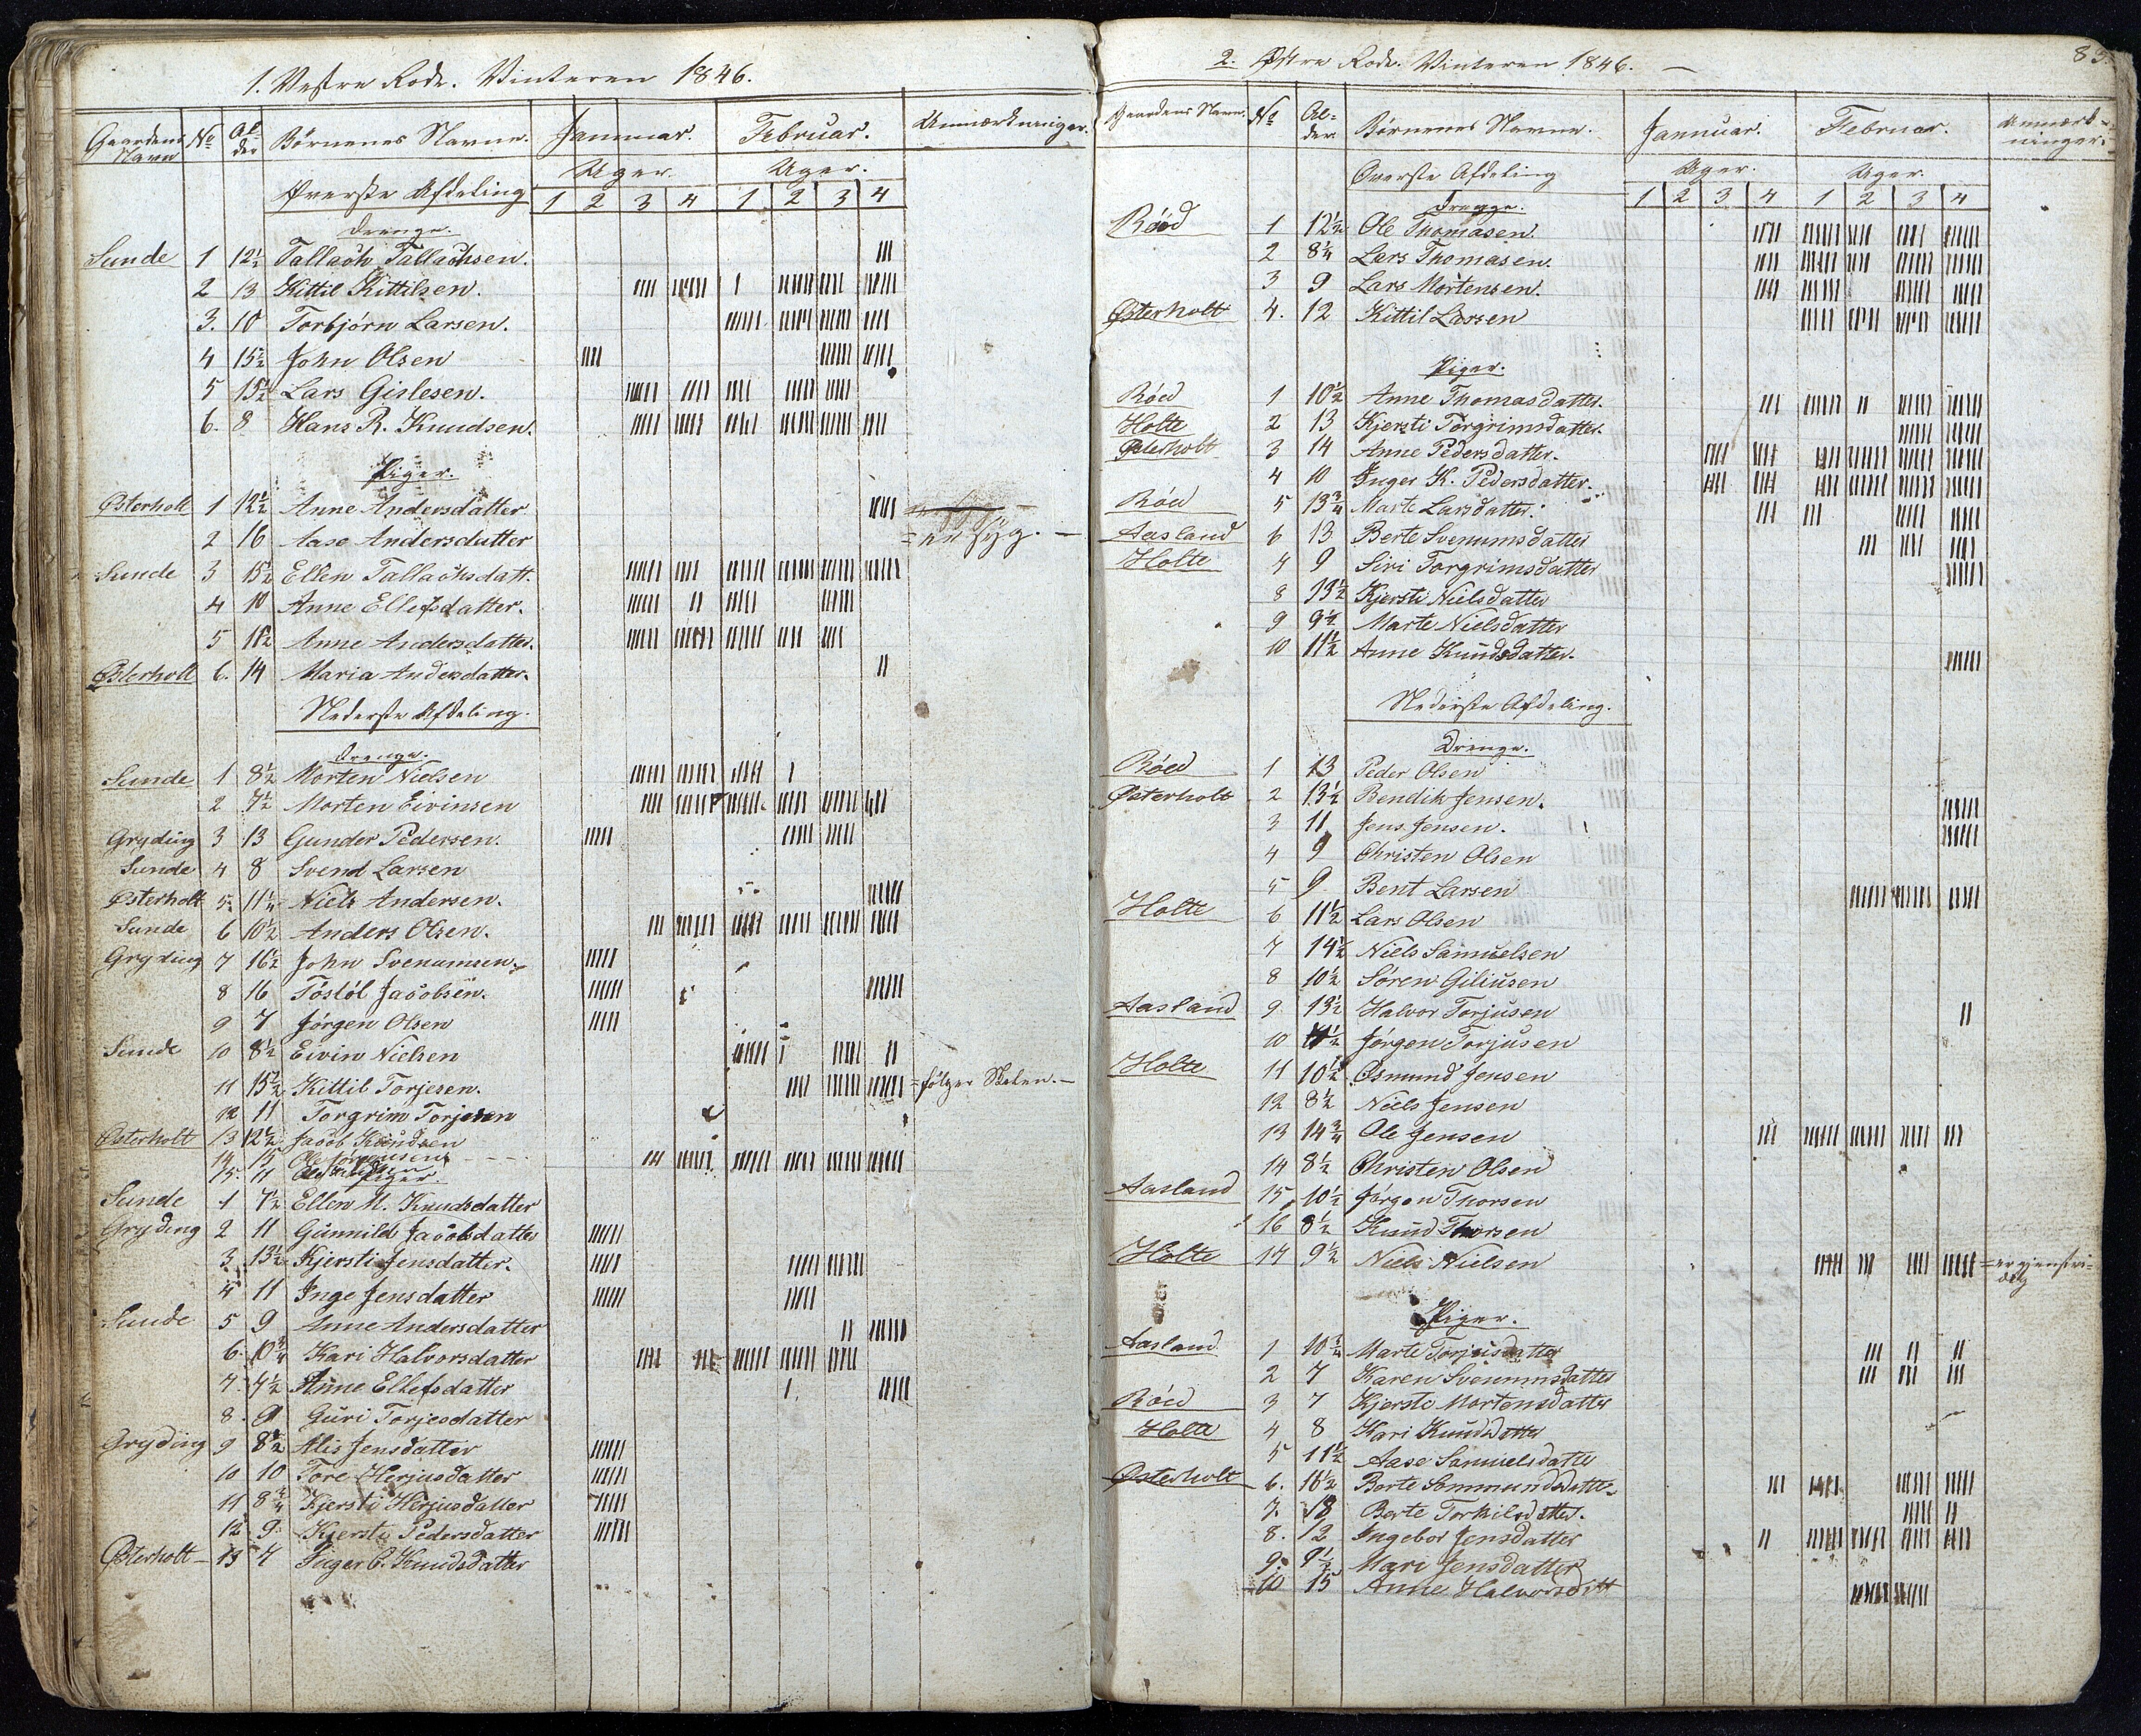 1. Vestre Rode. Vinteren 1846.
Gaardens Navn No Alder Børnenes Navne. Januar. Februar. Anmærkninger.
Øverste Afdeling Uger. Uger.
1 2 3 4 1 2 3 4
Drenge.
Sunde 1 12½ Tallach Tallachsen.
2 13 Kittil Kittilsen.
3. 10 Torbjørn Larsen.
4 15½ John Olsen
5 15½ Lars Gislesen.
6. 8 Hans R. Knudsen.
Piger.
Østerholt 1 12½ Anne Andersdatter
2 16 Aase Andersdatter = er syg. —
Sunde 3 15½ Ellen Tallachsdatt.
4 10 Anne Ellefsdatter.
5 11½ Anne Andersdatter.
Østerholt 6. 14 Maria Andersdatter.
Nederste Afdeling.
Drenge.
Sunde 1 8½ Morten Nielsen
2 7½ Morten Eivinsen
Gryding 3 13 Gunder Pedersen.
Sunde 4 8 Svend Larsen
Østerholt 5. 11¼ Niels Andersen.
Sunde 6 10½ Anders Olsen.
Gryding 7 16½ John Svenumsen.
8 16 Tostøl Jacobsen.
9 7 Jørgen Olsen
Sunde 10 8½ Eivin Nielsen
11 15½ Kittil Torjesen. = følger Skolen. —
12 11 Torgrim Torjesen
Østerholt 13 12½ Jacob Knudsen
14 15 Ole Jørgensen
15. 11 Ole
Piger.
Sunde 1 7½ Ellen M. Knudsdatter
Gryding 2 11 Gunnild Jacobsdatter
3. 13½ Kjersti Jensdatter.
4 11 Inge Jensdatter
Sunde 5 9 Anne Andersdatter
6. 10¾ Kari Halvorsdatter
7. 7½ Anne Ellefsdatter
8. 9 Guri Torjesdatter
Gryding 9 8½ Alis Jensdatter
10 10 Tore Herjusdatter
11 8¾ Kjersti Herjusdatter
12 9. Kjersti Pedersdatter
Østerholt 13 7 Inger C. Knudsdatter
2. Østre Rode. Vinteren 1846. —
83.
Gaardens Navn. No Alder Børnenes Navne. Januar. Februar. Anmærkninger.
Øverste Afdeling Uger. Uger.
1 2 3 4 1 2 3 4
Drenge.
Røed 1 12½ Ole Thomasen.
2 8¼ Lars Thomasen.
3 9 Lars Mortensen.
Østerholt 4. 12 Kittil Larsen
Piger.
Røed 1 10½ Anne Thomasdatter.
Holte 2 13 Kjersti Torgrimsdatter.
Østerholt 3 14 Anne Pedersdatter.
4 10 Inger K. Pedersdatter.
Røed 5 13¾ Marte Larsdatter.
Aasland 6 13 Berte Svenumsdatter
Holte 7 9 Siri Torgrimsdatter
8 13½ Kjersti Nielsdatter
9 9½ Marte Nielsdatter
10 11½ Anne Knudsdatter.
Nederste Afdeling.
Drenge.
Røed 1 13 Peder Olsen
Østerholt 2 13½ Bendik Jensen.
3 11 Jens Jensen.
4 9 Christen Olsen
5 9 Bent Larsen
Holte 6 11½ Lars Olsen
7 14½ Niels Samuelsen
8 10½ Søren Giliusen
Aasland 9 13½ Halvor Torjusen
10 Jørgen Torjusen
Holte 11 10½ Osmund Jensen
12 8½ Niels Jensen
13 14¾ Ole Jensen
14 8½ Christen Olsen
Aasland 15 10½ Jørgen Thorsen
16 8½ Knud Thorsen
Holte 17 9½ Niels Nielsen = er gjenstridig
Piger.
Aasland 1 10¾ Marte Torjusdatter
2 7 Karen Svenumsdatter
Røed 3 7 Kjersti Mortensdatter
Holte 4 8 Kari Knudsdatter
5 11½ Aase Samuelsdatter
Østerholt 6. 16½ Berte Sommundsdatt.
7. 18 Berte Torkilsdatter.
8. 12 Ingebor Jensdatter
9. 9½ Mari Jensdatter
10 15 Anne Halvorsdatt